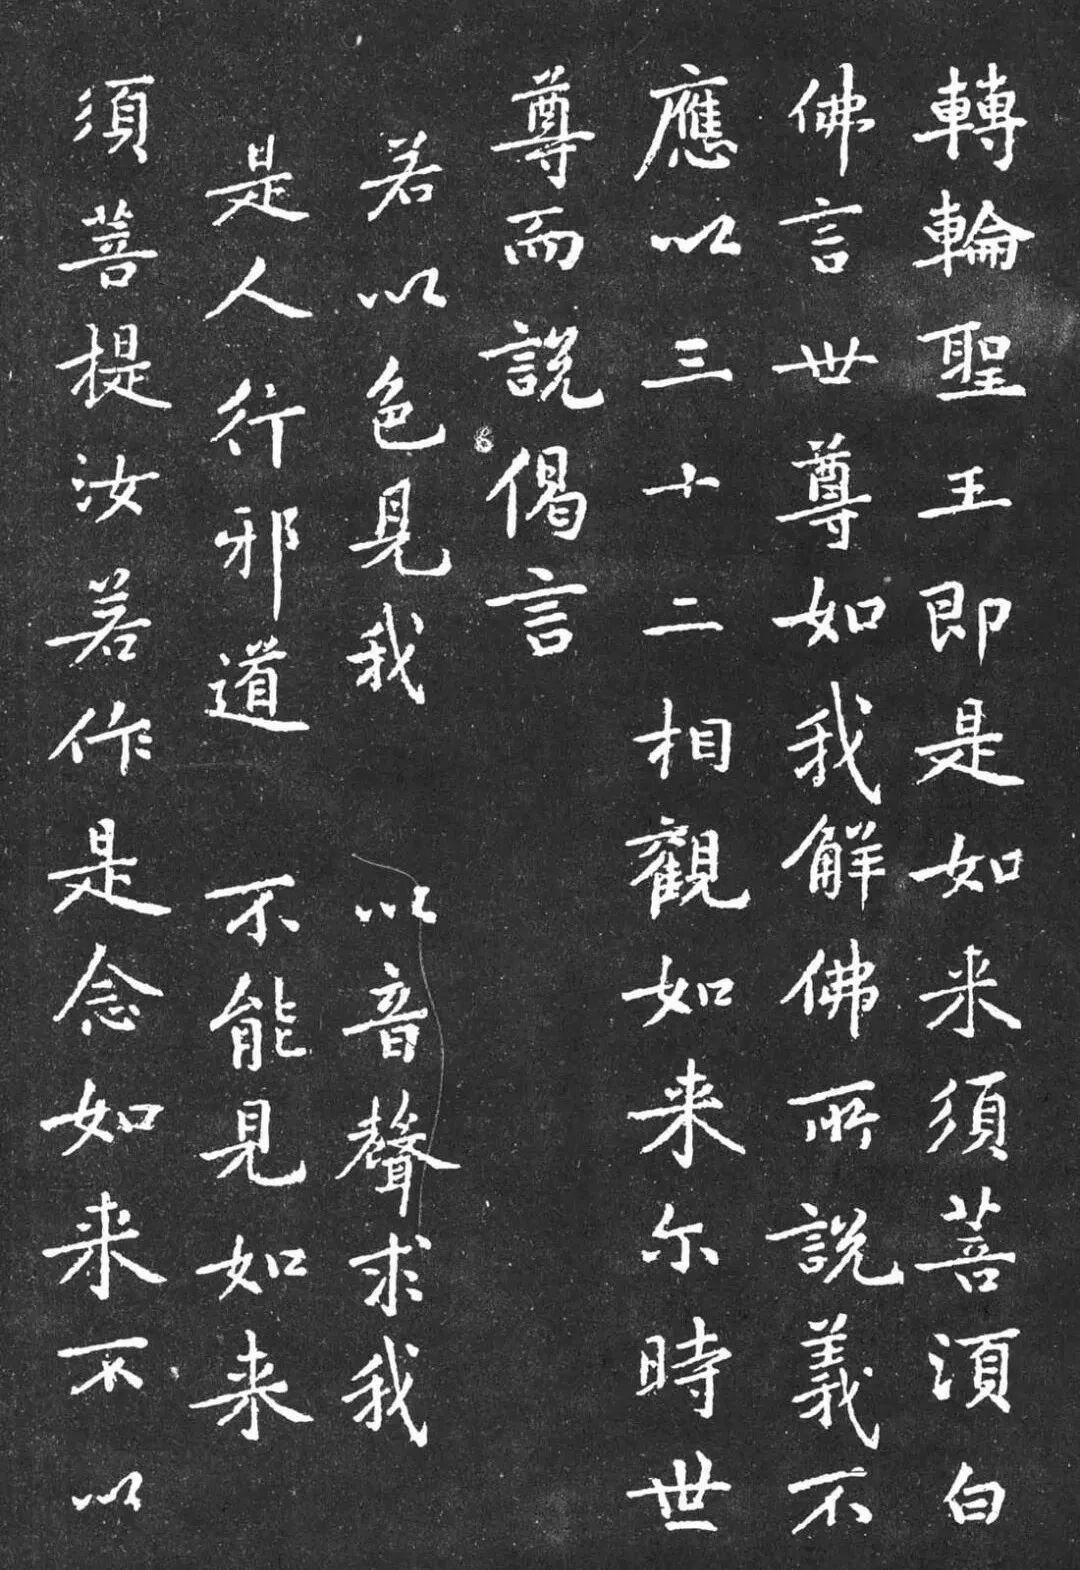 轉輪聖王即是如来須菩須白
佛言世尊如我解佛所說義不
應以三十二相觀如来尓時世
尊而說偈言
若以色見我 以音聲求我
是人行邪道 不能見如来
須菩提汝若作是念如来不以